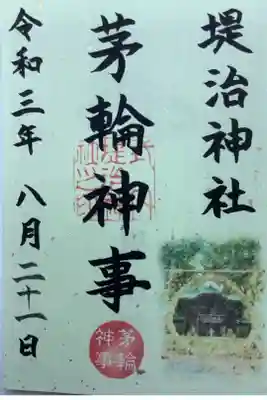 堤治神社
茅輪神事
令和三年 八月二十一日
茅輪
神事